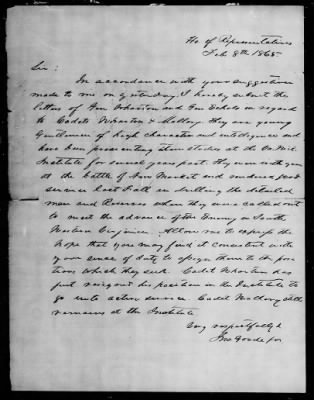 Ho of Representatives
Feb 8th 1865
Sir:
In accordance with your suggestion
made to me on yesterday, I hereby submit the
letters of Gen Wharton and Gen Echols in regard
to Cadets Wharton & Mallory. They are young
Gentlemen of high character and intelligence and
have been prosecuting their studies at the Va Mil.
Institute for several years past. They were with you
at the battle of New Market and rendered good
service last Fall in drilling the detailed
men and Reserves when they were called out
to meet the advance of the Enemy in South
Western Virginia. Allow me to express the
hope that you may find it consistent with
your sense of duty to assign them to the posi-
tions which they seek. Cadet Wharton has
just resigned his position in the Institute to
go into active service. Cadet Mallory still
remains at the Institute
Very respectfully
Jno Goode Jr